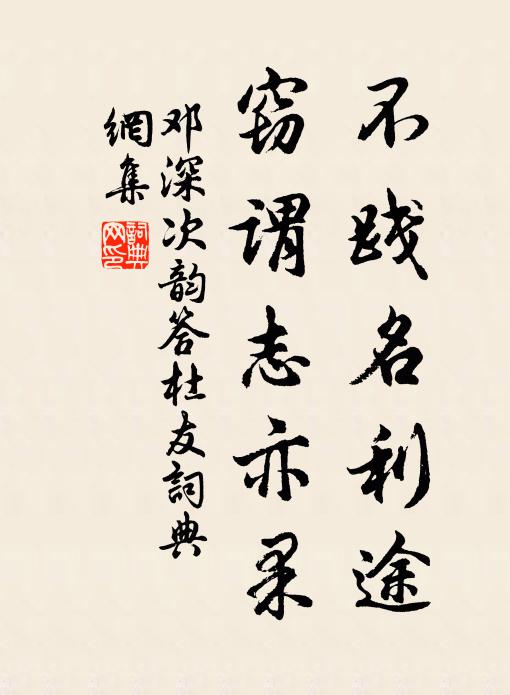 不践名利途
窃谓志亦果
邓深次韵答杜友詞典
網集
詞典
网印